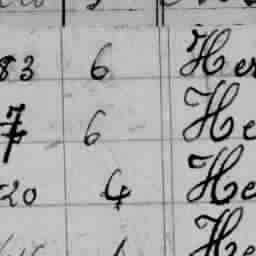 83 6 Her
7 6 He
20 4 He
He